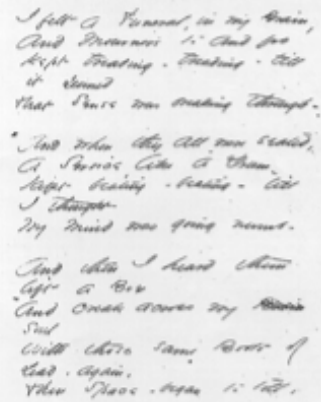 I felt a Funeral, in my Brain,
And Mourners to and fro
Kept treading - treading - till
it seemed
That Sense was breaking through -
And when they all were seated,
A Service, like a Drum -
Kept beating - beating - till
I thought
My mind was going numb -
And then I heard them
lift a Box
And creak across my
Soul
With those same Boots of
Lead, again,
Then Space - began to toll,